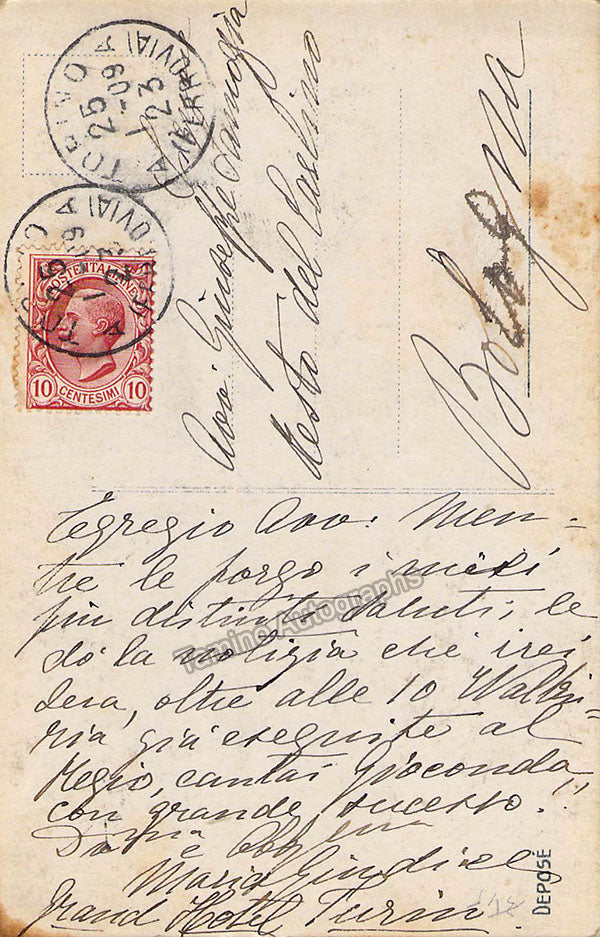 TORINO
25
1-09
23
FERROVIA
TORINO
25
1-09
FERROVIA
POSTE ITALIANE
10 CENTESIMI 10
Avv: Giuseppe
Resto del Carlino
Bologna
Egregio Avv: Men-
tre le porgo i miei
più distinti saluti, le
dò la notizia che ieri
sera, oltre alle 10 Walki-
ria già eseguite al
Regio, cantai Gioconda
con grande successo!!
Maria Giudice
Grand Hotel Turin
DEPOSE
Tamino Autographs